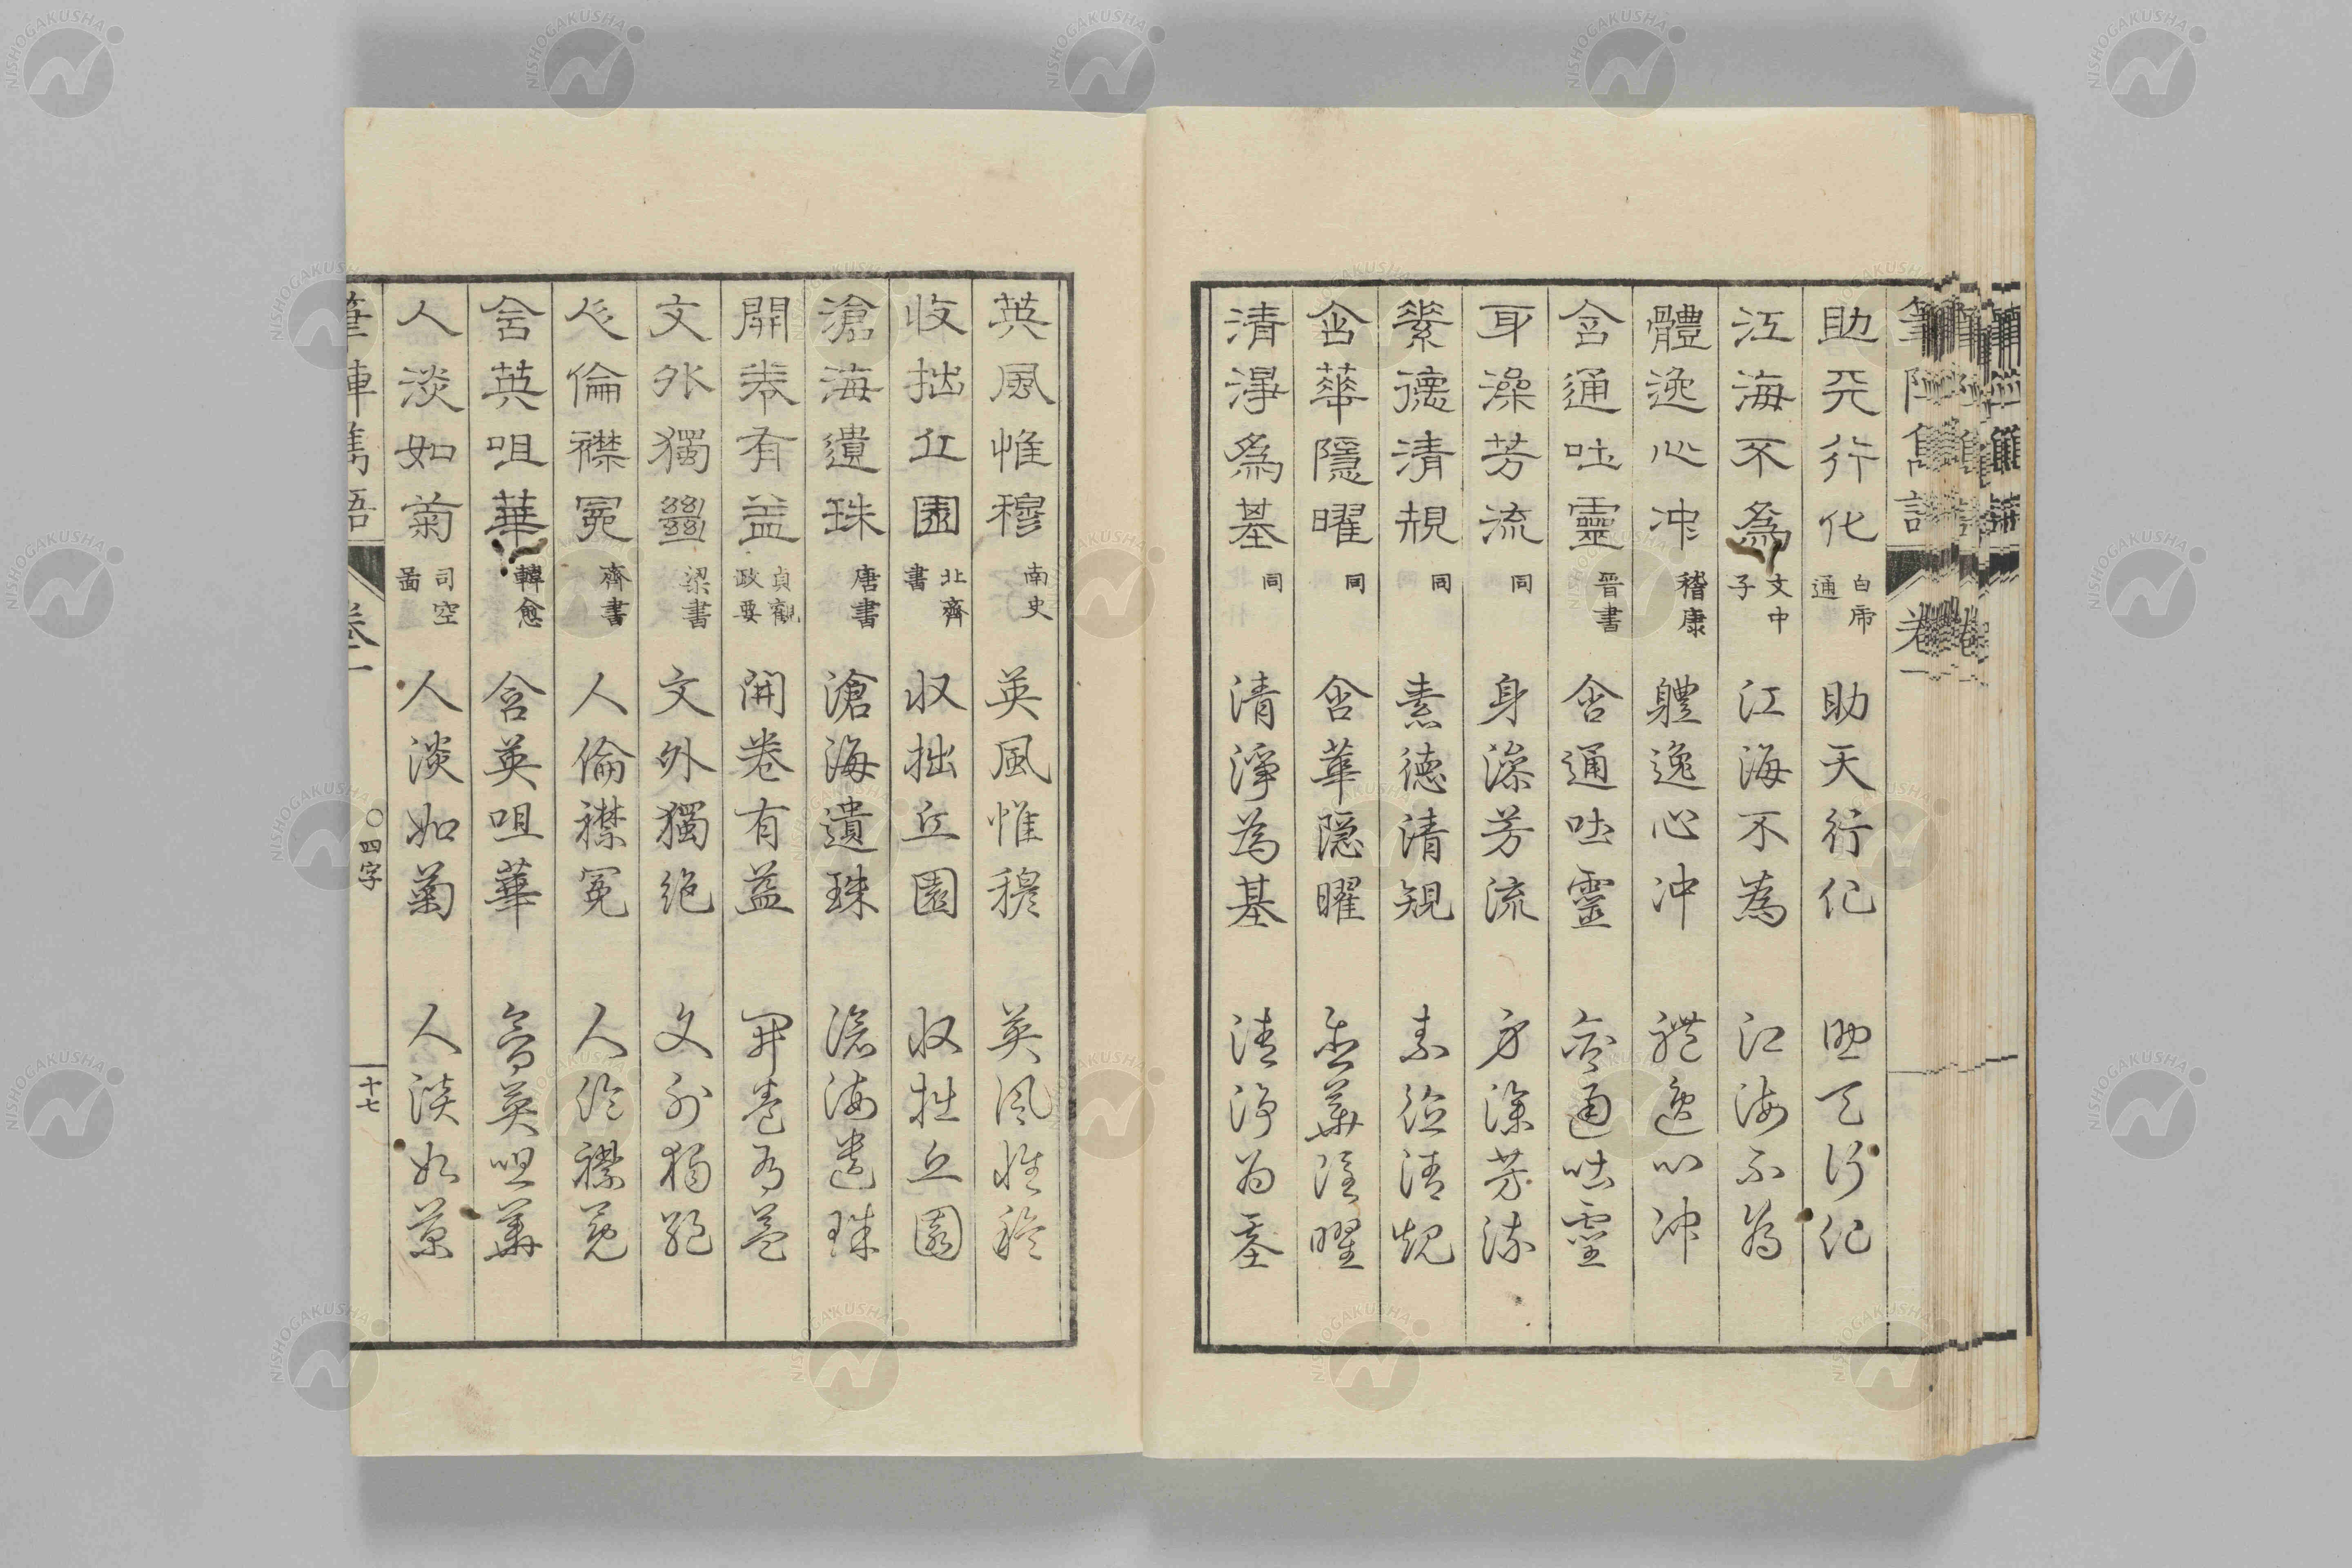 助天行化 白乕通 助天行化 助天行化
江海不爲 文中子 江海不為 江海不為
體逸心冲 稽康 軆逸心冲 體逸心冲
含通吐靈 晉書 含通吐靈 含通吐靈
身澡芳流 同 身澡芳流 身澡芳流
素德清規 同 素德清規 素德清規
含華隱曜 同 含華隱曜 含華隱曜
清淨爲基 同 清淨為基 清淨為基
英風惟穆 南史 英風惟穆 英風惟穆
收拙丘園 北齊書 収拙丘園 収拙丘園
滄海遺珠 唐書 滄海遺珠 滄海遺珠
開卷有益 貞觀政要 開卷有益 開卷有益
文外獨絕 梁書 文外獨絶 文外獨絶
人倫襟冕 齊書 人倫襟冕 人倫襟冕
含英咀華 韓愈 含英咀華 含英咀華
人淡如菊 司空啚 人淡如菊 人淡如菊
筆陣雋語 卷一 〇四字 十七
NISHOGAKUSHA